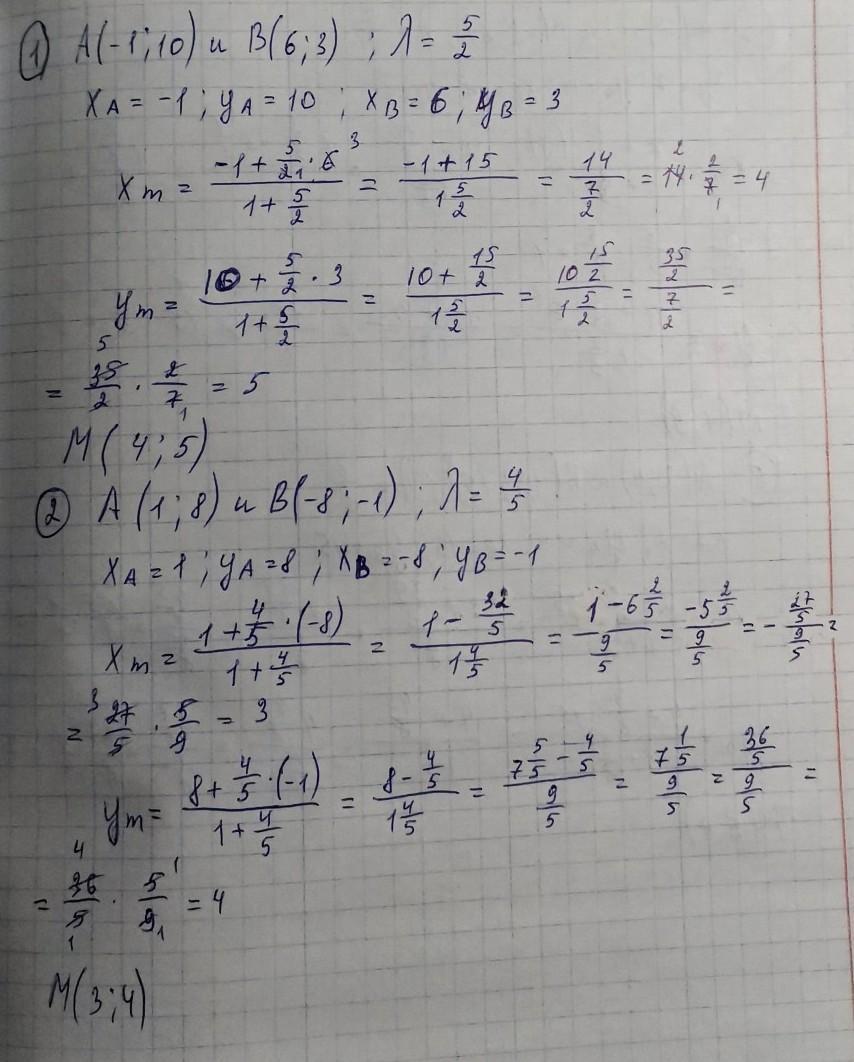 1) A(-1;10) и B(6;3) ; λ = 5/2
xA = -1 ; yA = 10 ; xB = 6 ; yB = 3
xm = (-1 + 5/2 · 6)/(1 + 5/2) = (-1 + 15)/(1 5/2) = 14/(7/2) = 14 · 2/7 = 4
ym = (10 + 5/2 · 3)/(1 + 5/2) = (10 + 15/2)/(1 5/2) = (10 15/2)/(1 5/2) = (35/2)/(7/2) =
= 35/2 · 2/7 = 5
M(4;5)
2) A(1;8) и B(-8;-1) ; λ = 4/5
xA = 1 ; yA = 8 ; xB = -8 ; yB = -1
xm = (1 + 4/5 · (-8))/(1 + 4/5) = (1 - 32/5)/(1 4/5) = (1 - 6 2/5)/(9/5) = (-5 2/5)/(9/5) = -(27/5)/(9/5) =
= 27/5 · 5/9 = 3
ym = (8 + 4/5 · (-1))/(1 + 4/5) = (8 - 4/5)/(1 4/5) = (7 5/5 - 4/5)/(9/5) = (7 1/5)/(9/5) = (36/5)/(9/5) =
= 36/5 · 5/9 = 4
M(3;4)